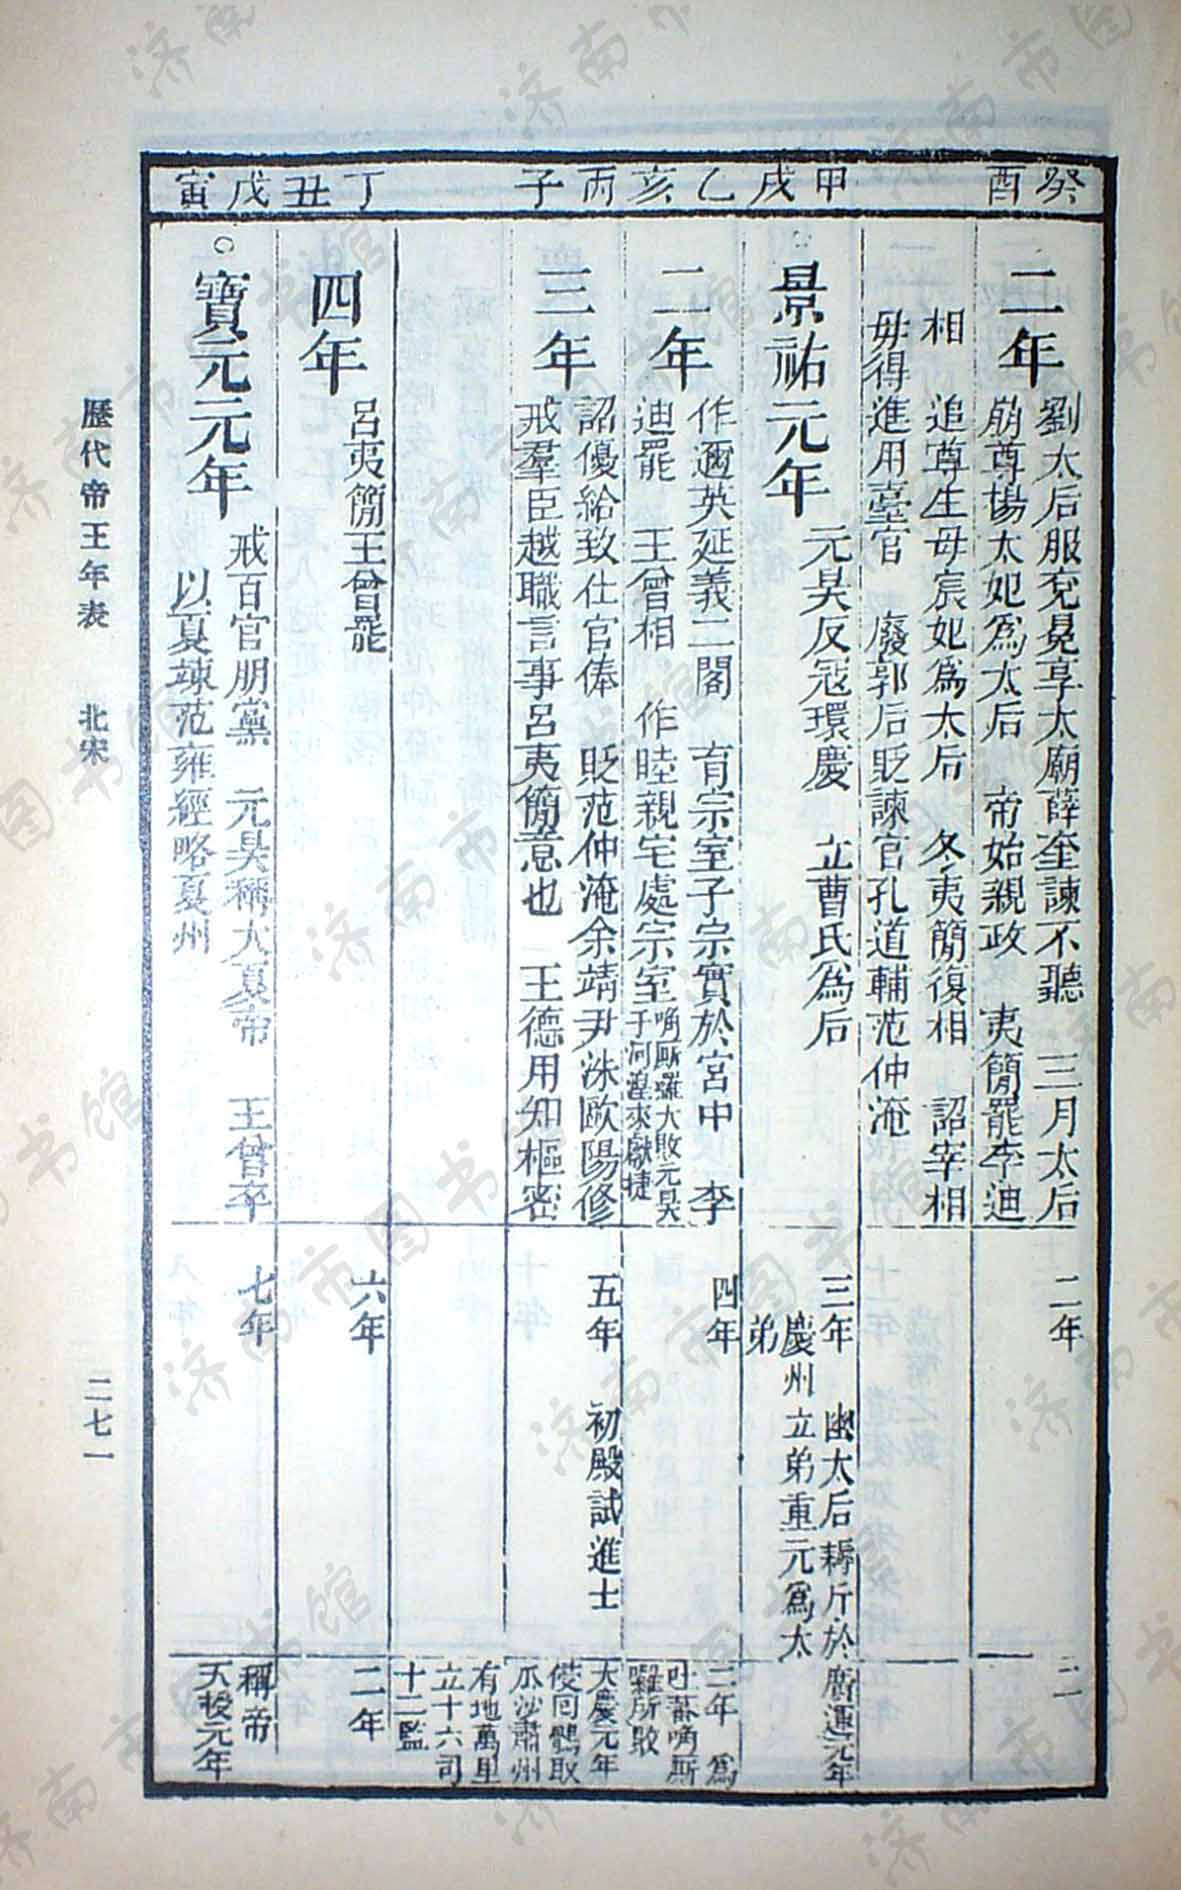 癸酉
二年
劉太后服兗冕享太廟薛奎諫不聽 三月太后
崩尊楊太妃爲太后 帝始親政 夷簡罷李迪
相 追尊生母宸妃爲太后 冬夷簡復相 詔宰相
毋得進用臺官 廢郭后貶諫官孔道輔范仲淹
二年
甲戌
景祐元年
元昊反寇環慶 立曹氏爲后
三年 幽太后耨斤於
慶州 立弟重元爲太
弟
廣運元年
乙亥
二年
作邇英延義二閣 育宗室子宗實於宮中 李
迪罷 王曾相 作睦親宅處宗室
唃厮囉大敗元昊
于河湟來獻捷
四年
二年 爲
吐蕃唃厮
囉所敗
丙子
三年
詔優給致仕官俸 貶范仲淹余靖尹洙歐陽修
戒羣臣越職言事呂夷簡意也 王德用知樞密
五年 初殿試進士
大慶元年
侵回鶻取
瓜沙肅州
有地萬里
立十六司
十二監
丁丑
四年
呂夷簡王曾罷
六年
二年
戊寅
寶元元年
戒百官朋黨 元昊稱大夏帝 王曾卒
以夏竦范雍經略夏州
七年
稱帝
天授元年
歷代帝王年表 北宋
二七一
济南市图书馆